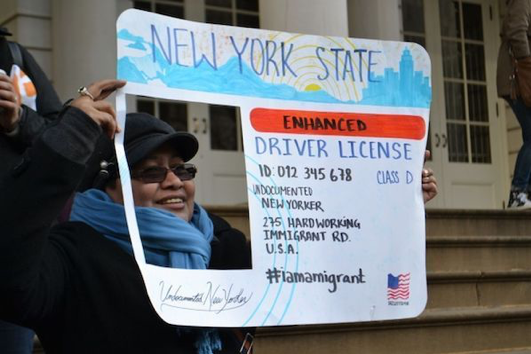 NEW YORK STATE
ENHANCED
DRIVER LICENSE
ID: 012 345 678 CLASS D
UNDOCUMENTED
NEW YORKER
275 HARDWORKING
IMMIGRANT RD.
U.S.A.
#iamamigrant
Undocumented New Yorker